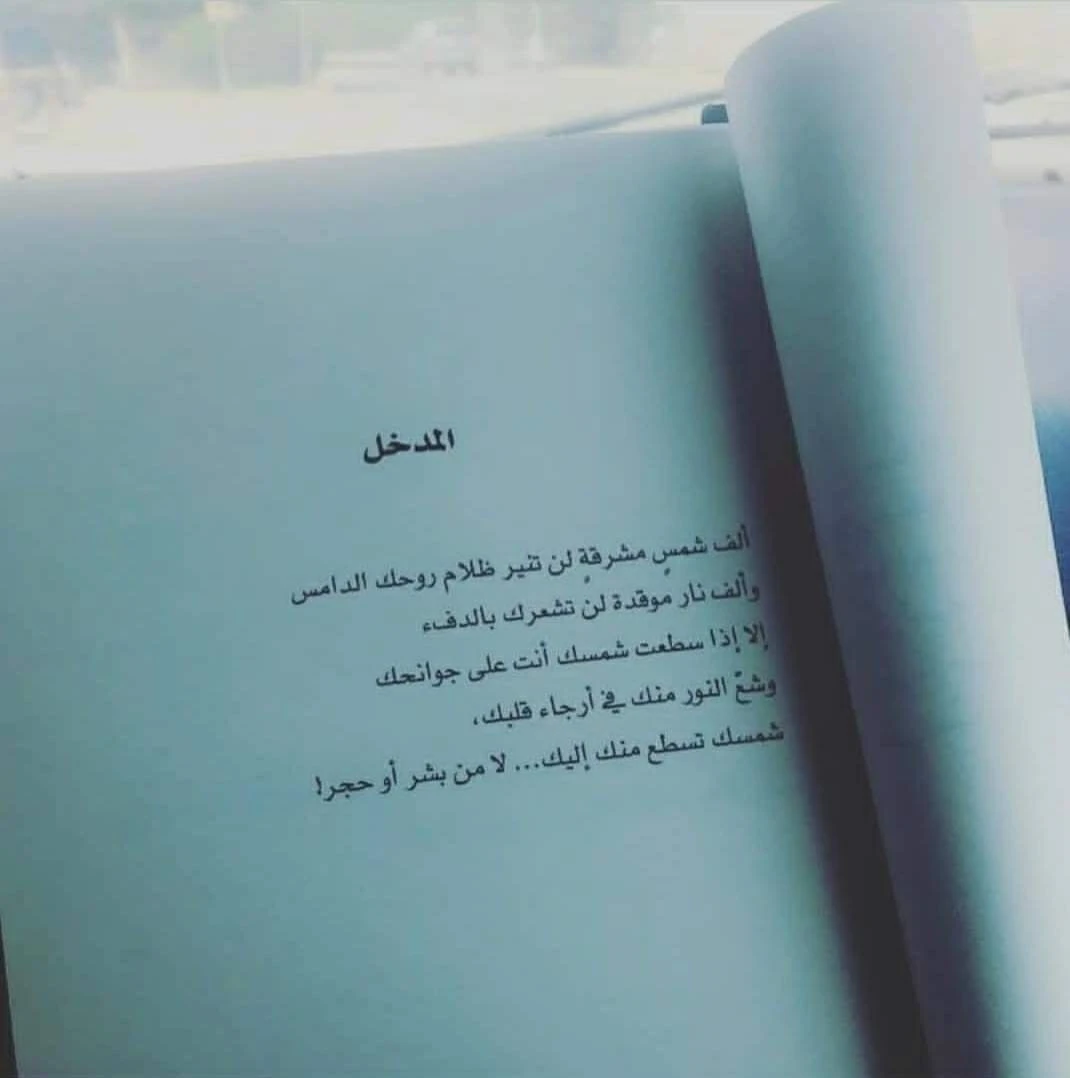 المدخل
ألف شمسٍ مشرقةٍ لن تنير ظلام روحك الدامس
وألف نارٍ موقدة لن تشعرك بالدفء
إلا إذا سطعت شمسك أنت على جوانحك
وشعّ النور منك في أرجاء قلبك،
شمسك تسطع منك إليك... لا من بشر أو حجر!